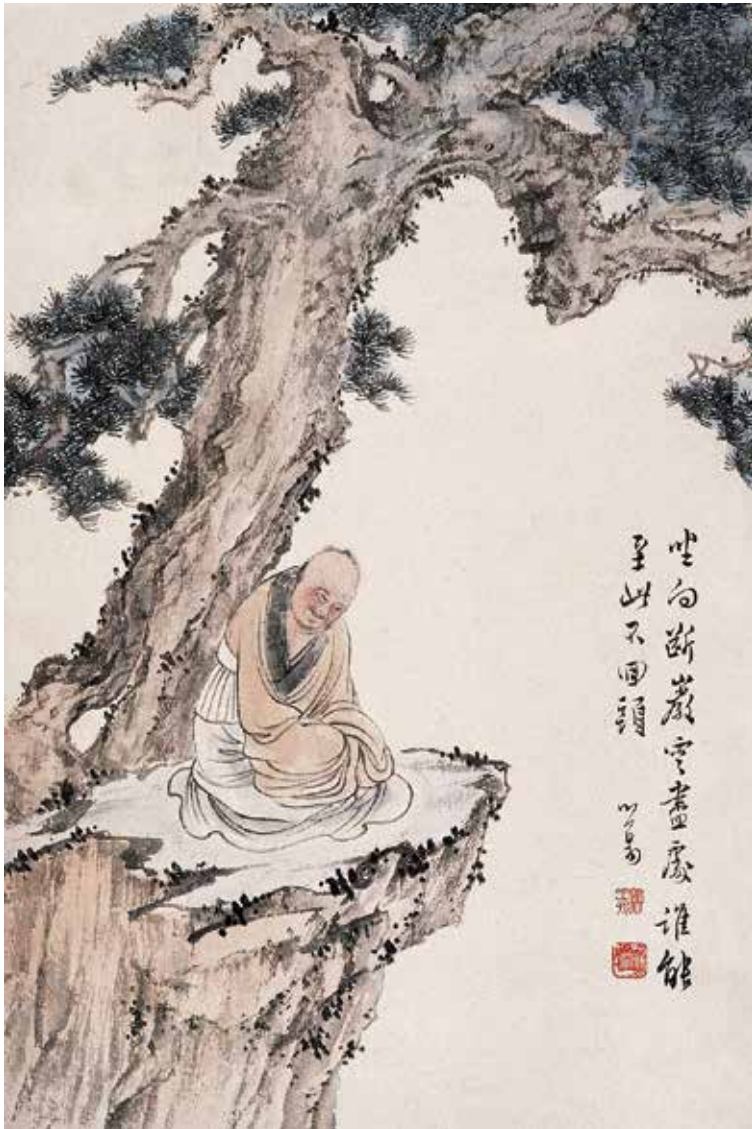 坐向斷巖雲盡處誰能
至此不回頭
心畬